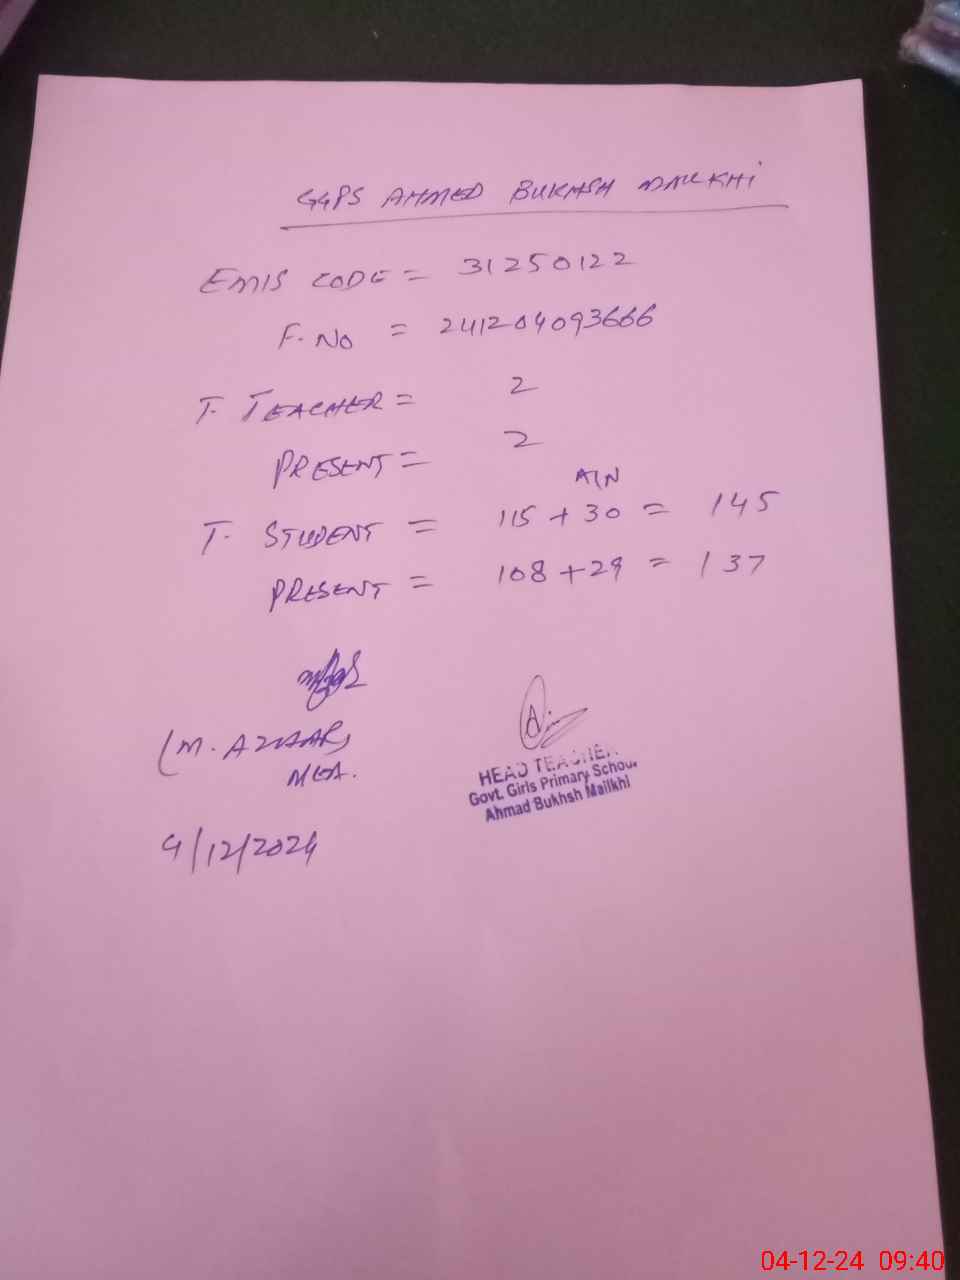 GGPS AHMED BUKHSH MAILKHI
EMIS CODE = 31250122
F. NO = 241204093666
T. TEACHER = 2
PRESENT = 2
A/N
T. STUDENT = 115 + 30 = 145
PRESENT = 108 + 29 = 137
(M. AZHAR)
MEA.
4/12/2024
HEAD TEACHER
Govt. Girls Primary School
Ahmad Bukhsh Mailkhi
04-12-24 09:40